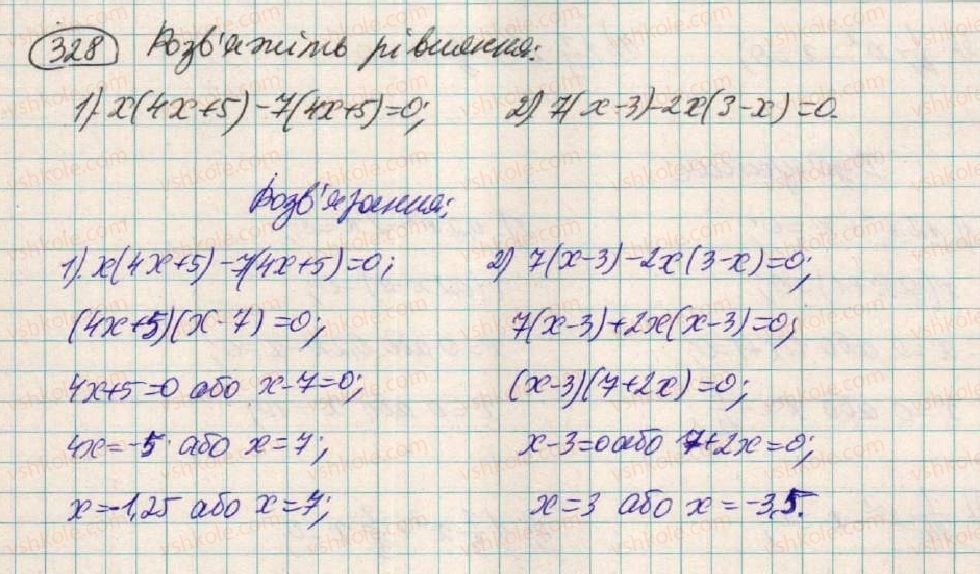 328 Розв'яжіть рівняння:
1) x(4x+5)-7(4x+5)=0; 2) 7(x-3)-2x(3-x)=0.
Розв'язання:
1) x(4x+5)-7(4x+5)=0; 2) 7(x-3)-2x(3-x)=0;
(4x+5)(x-7)=0; 7(x-3)+2x(x-3)=0;
4x+5=0 або x-7=0; (x-3)(7+2x)=0;
4x=-5 або x=7; x-3=0 або 7+2x=0;
x=-1,25 або x=7; x=3 або x=-3,5.